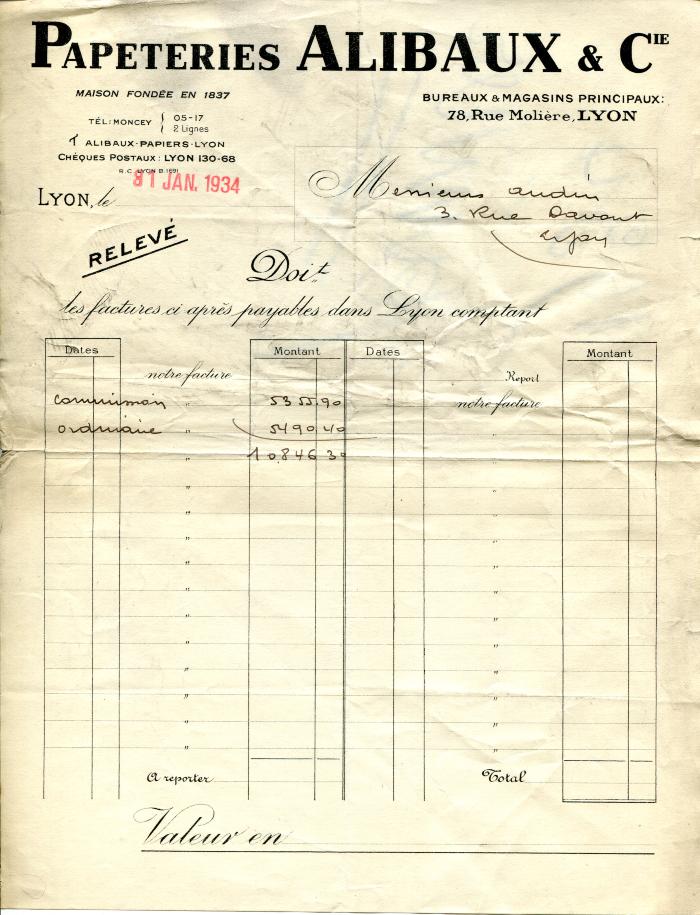 PAPETERIES ALIBAUX & CIE
MAISON FONDÉE EN 1837
TÉL: MONCEY 05-17
2 Lignes
ALIBAUX-PAPIERS-LYON
CHÈQUES POSTAUX: LYON 130-68
R.C. LYON B.1691
BUREAUX & MAGASINS PRINCIPAUX:
78, Rue Molière, LYON
LYON, le 31 JAN. 1934
Messieurs Audin
3. Rue Davout
Lyon
RELEVÉ
Doit
les factures ci après payables dans Lyon comptant
Dates Montant Dates Montant
notre facture Report
commission " 5355.90 notre facture
ordinaire " 5490 40 "
10846 30
A reporter Total
Valeur en